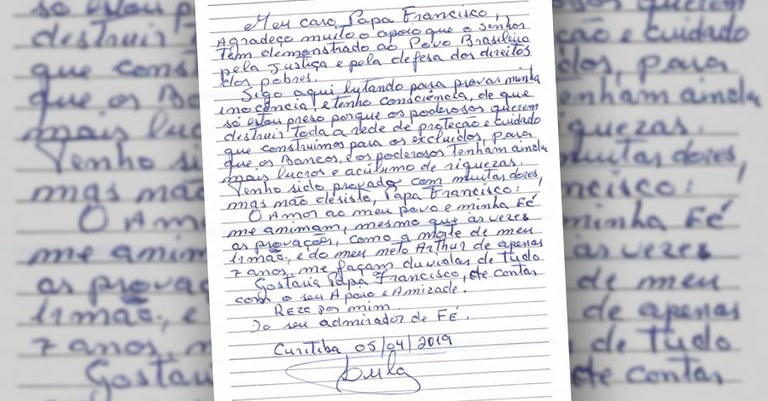 Meu caro, Papa Francisco,
Agradeço muito o apoio que o senhor
Tem demonstrado ao Povo Brasileiro
pela Justiça e pela defesa dos direitos
dos pobres.
Sigo aqui lutando para provar minha
inocência, e tenho consciência, de que
só estou preso porque os poderosos querem
destruir toda a rede de proteção e cuidado
que construímos para os excluidos, para
que os Bancos, e os poderosos Tenham ainda
mais lucros e acúmulo de riquezas.
Tenho sido provado com muitas dores,
mas não desisto, Papa Francisco:
O Amor ao meu povo e minha Fé
me animam, mesmo que às vezes
as provações, como a morte de meu
irmão, e do meu neto Arthur de apenas
7 anos, me façam duvidar de Tudo
Gostaria Papa Francisco, de contar
com o seu Apoio e Amizade.
Reze por mim
Do seu admirador de FÉ.
Curitiba 05/04/2019
Lula